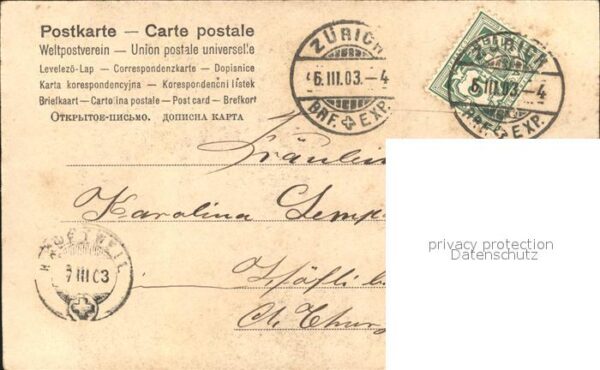 Postkarte — Carte postale
Weltpostverein — Union postale universelle
Levelező-Lap — Correspondenzkarte — Dopisnice
Karta korespondencyjna — Korespondenční lístek
Briefkaart — Cartolina postale — Post card — Brefkort
Открытое-письмо. дописна карта
ZÜRICH
6.III.03.–4
BRF. EXP.
ZÜRICH
6.III.03.–4
BRF. EXP.
Fräulein
Karolina
privacy protection
Datenschutz
7 III 03